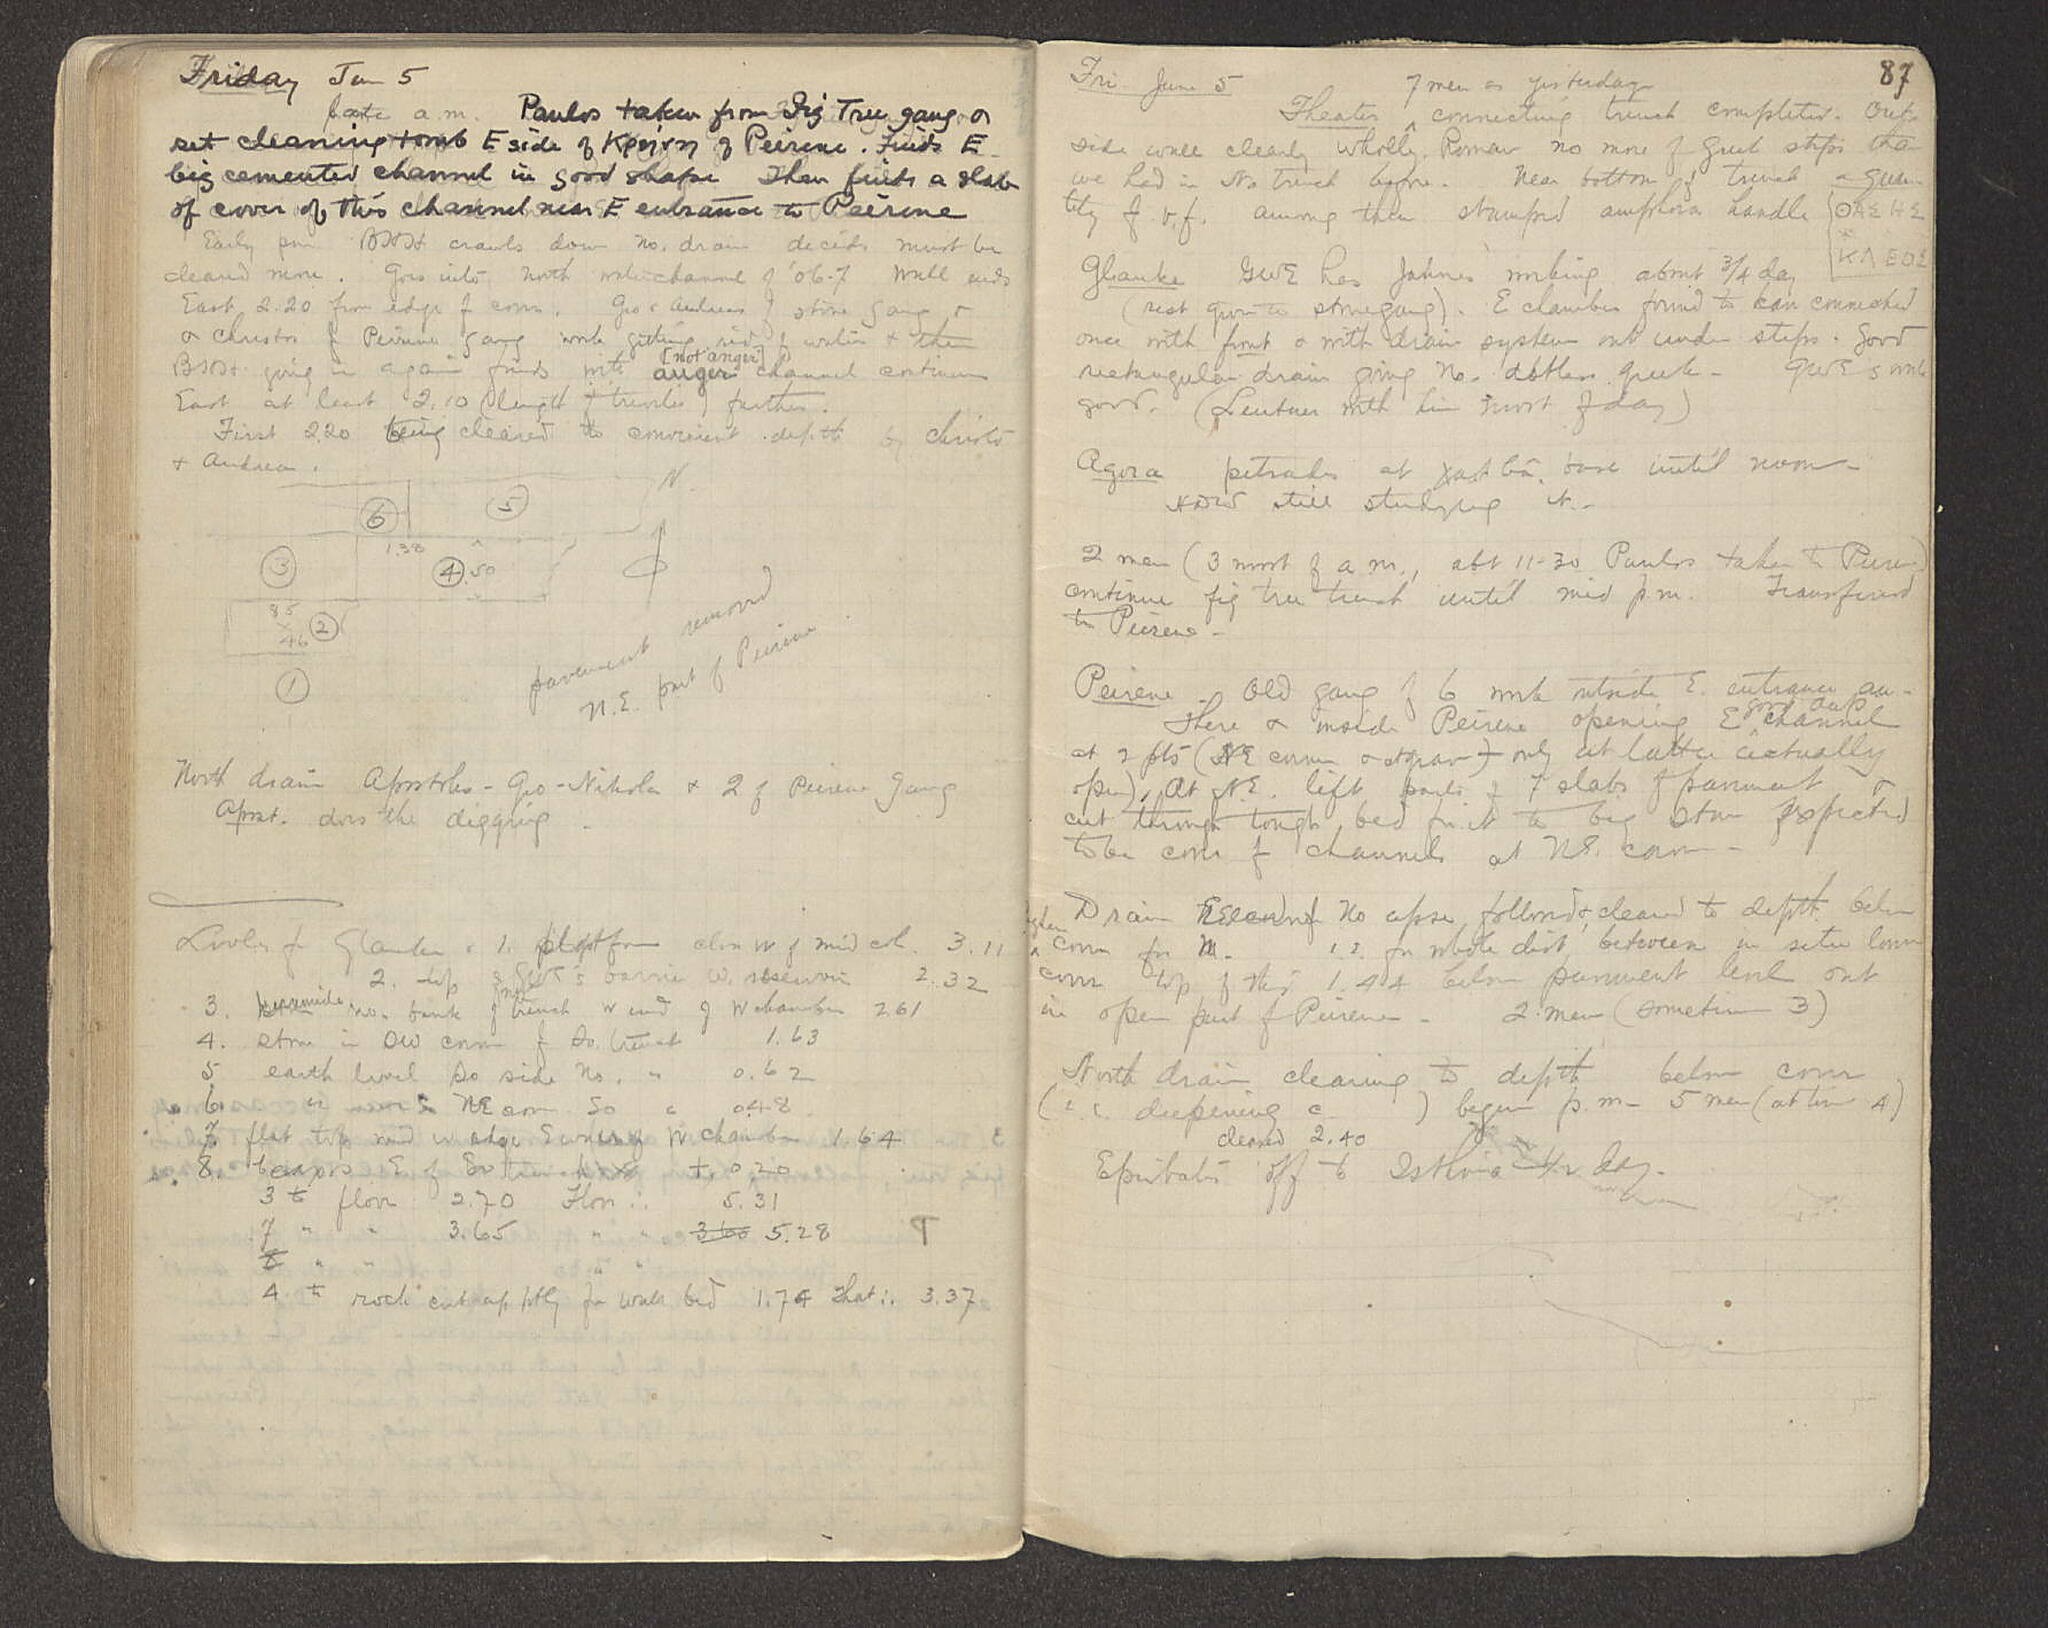 Friday Jun 5
late a.m. Paulos taken from Fig Tree gang &
set cleaning tomb E side of Κρήνη of Peirene. Finds E
big cemented channel in good shape Then finds a slab
of cover of this channel near E entrance to Peirene
Early pm BHH crawls down No. drain decides must be
cleared more. Goes into North water channel of '06-7 Wall ends
East 2.20 from edge of corn. Geo & Andreas of stone gang &
& Christos of Peirene gang work getting rid of water & then
BHH going in again finds with auger [not anger] channel continues
East at least 2.10 (length of trevelli) further.
First 2.20 being cleared to convenient depth by Christo
& Andrea.
N.
6 5
1.38
3 4 .50
85
×
46 2
1
pavement removed
N.E. part of Peirene
North drain Apostolos - Geo - Nikola & 2 of Peirene Gang
Apost. does the digging -
Levels for Glauke 1. platform W of mid col. 3.11
2. top of GWE's barrier W. reservoir 2.32
3. No. bank of trench W end of W chamber 2.61
4. stone in SW corner of So. trench 1.63
5 earth level So side No. " 0.62
6. " " NE corn So " 0.48
7 flat top mid W edge of W chamber 1.64
8. E of So trench +. 0.20
3 to floor 2.70 Floor ∴ 5.31
7 " " 3.65 " " 3.60 5.28
6 " " " "
4 to rock cut up ptly for wall bed 1.74 That ∴ 3.37
87
Fri. June 5 7 men as yesterday
Theater connecting trench completed. Out-
side wall clearly wholly Roman no more of Greek steps than
we had in No trench before. Near bottom of trench a quan-
tity of v.f. among them stamped amphora handle
Glauke GWE has Johnnes working about 3/4 day
(rest given to stone gang). E chamber found to have connected
once with front & with drain system out under steps. Good
rectangular drain going No. dbtless Greek - GWE's work
good. (Leutner with him most of day)
Agora petrades at base until noon -
KDW still studying it. -
2 men (3 most of a m., abt 11-30 Paulos taken to Peirene)
continue fig tree trench until mid p.m. Transferred
to Peirene -
Peirene - Old gang of 6 work outside E. entrance an-
good dup
There & inside Peirene opening E channel
at 2 pts (NE corner ) only at latter actually
open). At N.E. lift parts of 7 slabs of pavement &
cut through tough bed for it to big stone expected
to be cover of channels at N.E. corner -
Drain No apse followed & cleared to depth below
cover for m. i.e. for whole dist. between in situ lower
cover top of this 1.44 below pavement level out
in open part of Peirene - 2 men (sometimes 3)
North drain clearing to depth below cover
(i.e. deepening ) began p.m - 5 men (at times 4)
cleared 2.40
Epistates off to Isthmia 1/2 day.